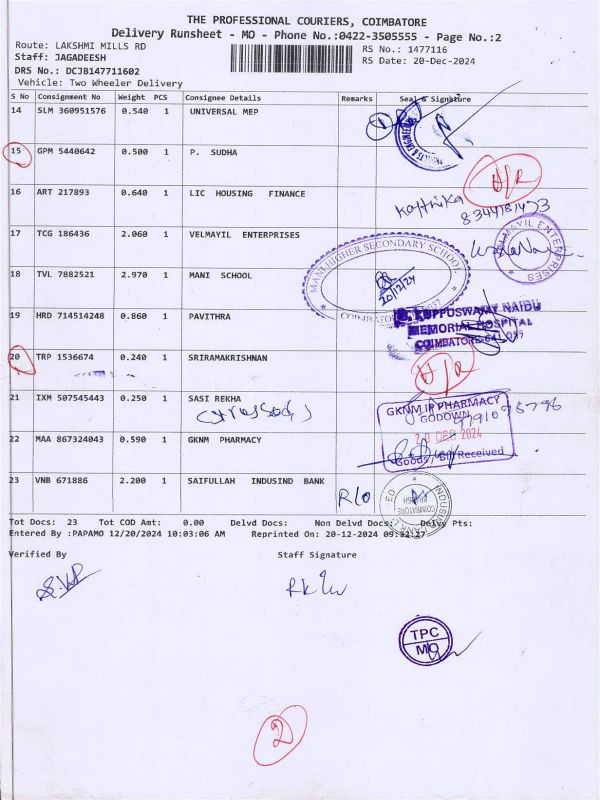 THE PROFESSIONAL COURIERS, COIMBATORE
Delivery Runsheet - MO - Phone No.:0422-3505555 - Page No.:2
Route: LAKSHMI MILLS RD
RS No.: 1477116
Staff: JAGADEESH
RS Date: 20-Dec-2024
DRS No.: DCJB147711602
Vehicle: Two Wheeler Delivery
S No Consignment No Weight PCS Consignee Details Remarks Seal & Signature
14 SLM 360951576 0.540 1 UNIVERSAL MEP
15 GPM 5440642 0.500 1 P. SUDHA
16 ART 217893 0.640 1 LIC HOUSING FINANCE Karthika
17 TCG 186436 2.060 1 VELMAYIL ENTERPRISES
MANI HIGHER SECONDARY SCHOOL
18 TVL 7882521 2.970 1 MANI SCHOOL
20/12/24
19 HRD 714514248 0.860 1 PAVITHRA
KUPPUSWAMY NAIDU
MEMORIAL HOSPITAL
COIMBATORE-641 037
20 TRP 1536674 0.240 1 SRIRAMAKRISHNAN
21 IXM 507545443 0.250 1 SASI REKHA
GKNM IP PHARMACY
GODOWN
20 DEC 2024
Goods / Bill Received
22 MAA 867324043 0.590 1 GKNM PHARMACY
23 VNB 671886 2.200 1 SAIFULLAH INDUSIND BANK
Tot Docs: 23 Tot COD Amt: 0.00 Delvd Docs: Non Delvd Docs: Delvy Pts:
Entered By :PAPAMO 12/20/2024 10:03:06 AM Reprinted On: 20-12-2024 09:32:27
Verified By Staff Signature
TPC
MO
2